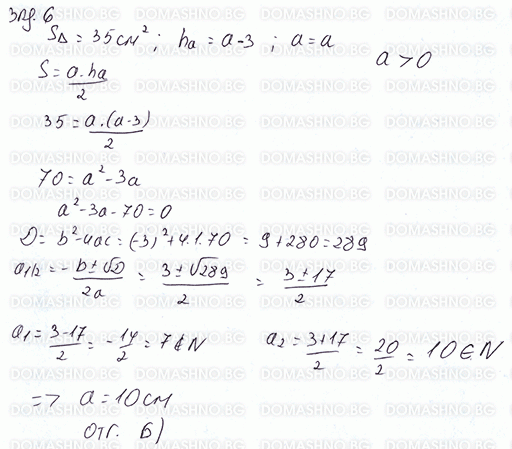 Зад 6
S△ = 35 см²; ha = a - 3 ; a = a
a > 0
S = a.ha / 2
35 = a.(a-3) / 2
70 = a² - 3a
a² - 3a - 70 = 0
D = b² - 4ac = (-3)² + 4.1.70 = 9 + 280 = 289
a1/2 = -b ± √D / 2a = 3 ± √289 / 2 = 3 ± 17 / 2
a1 = 3 - 17 / 2 = -14 / 2 = 7 ∉ N a2 = 3 + 17 / 2 = 20 / 2 = 10 ∈ N
=> a = 10 см
отг. Б)
DOMASHNO.BG